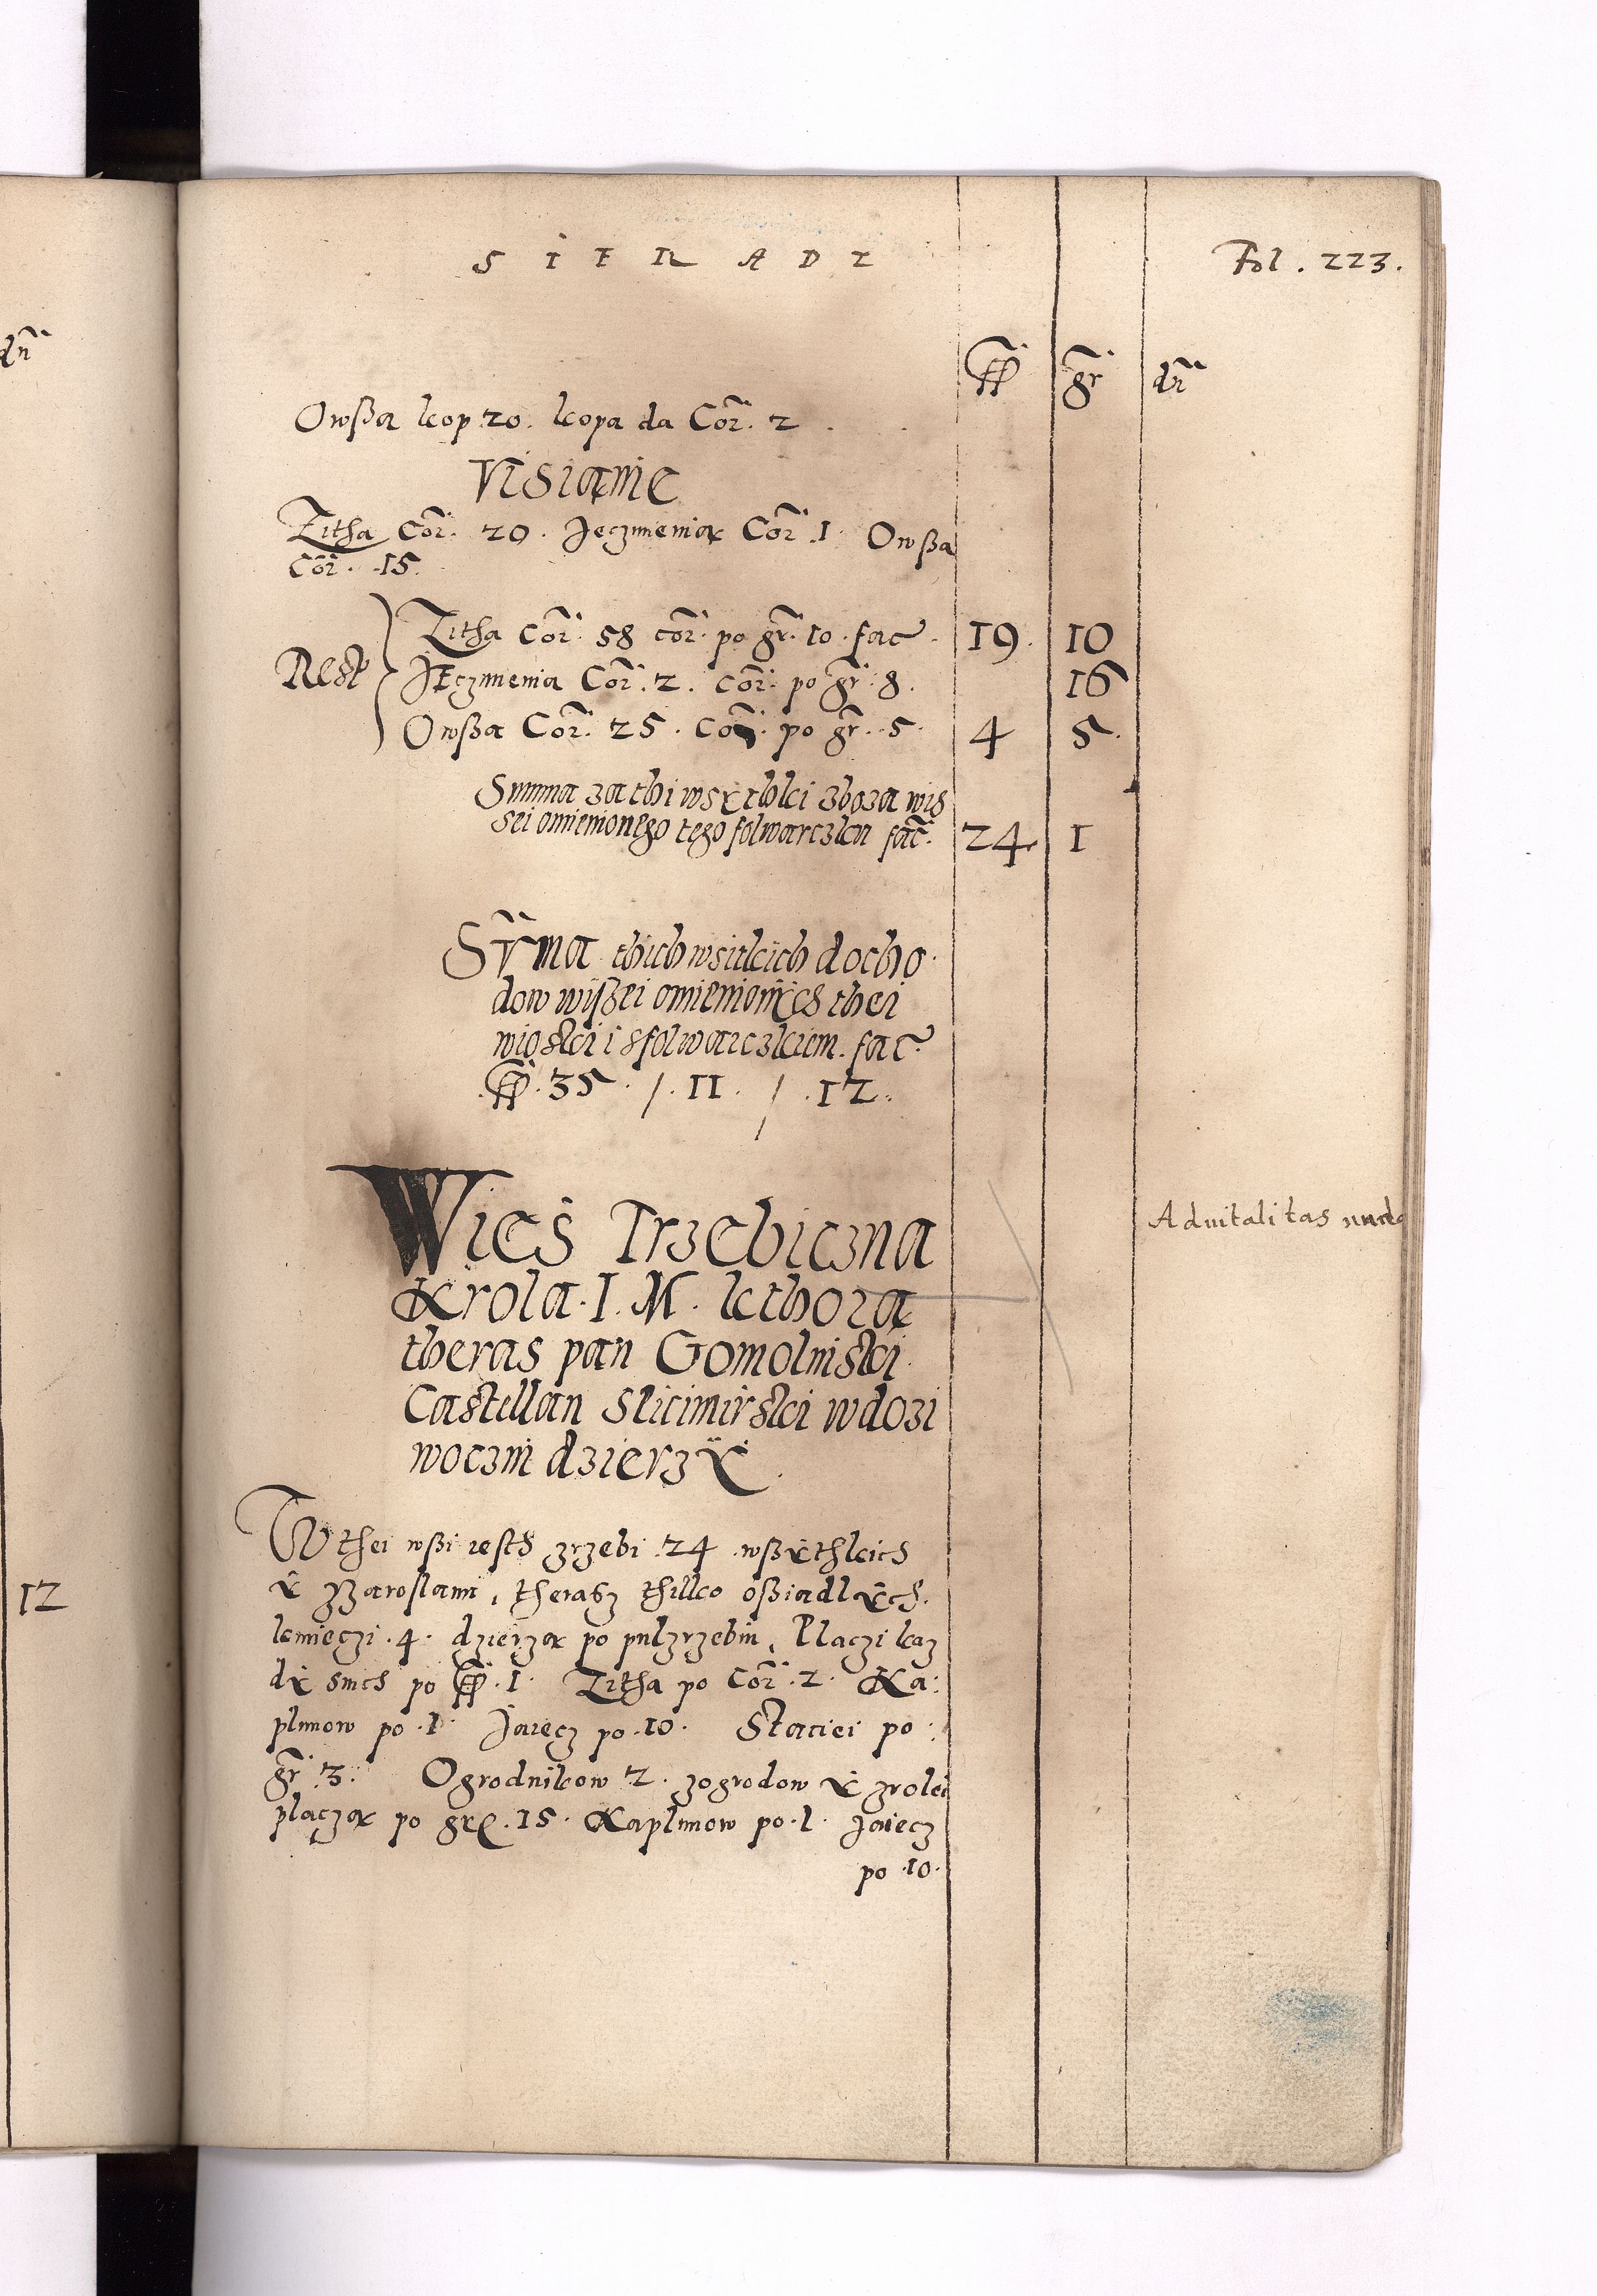 dn̄
12
S I E R A D Z
Fol. 223.
ff gr dn̄
Owßa kop 20. kopa da Cor̄. 2.
Visianie
Zitha Cor̄. 20. Jęczmienia Cor̄. 1. Owßa
Cor̄. 15.
Rest
Zitha Cor̄. 58 cor̄. po gr̄. 10. fac. 19. 10
Jęczmienia Cor̄. 2. cor̄. po gr̄. 8. 16
Owßa Cor̄. 25. po gr̄. 5. 4 5.
Summa za thi wsythki zboza wis
sei omienionego tego folwarczka fac̄. 24. 1
Sum̄a thich wsitkich docho
dow wiszei omienionych thei
wioski i sfolwarczkiem. fac.
ff. 35. /. 11. / .12.
Wies Trzebiczna
Krola. I. M. kthorą
theras pan Gomolinski
Castellan Spicimirski wdozi
woczin dzierzy.
W thei wßi iesth zrzebi 24 wßythkich
y zzaroslami, therasz thilko oßiadlych.
kmieczi. 4. dzierzą po pulzrzebiu, Placzi kaz
dy snich po ff. 1. Zitha po Cor̄. 2. Ka:
plunow po. 1. Jaiecz po. 10. Staciei po:
gr̄. 3. Ogrodnikow 2. zogrodow y zrolei
placzą po gr. 15. Kaplunow po. 1. Jaiecz
po. 10.
Aduitalitas